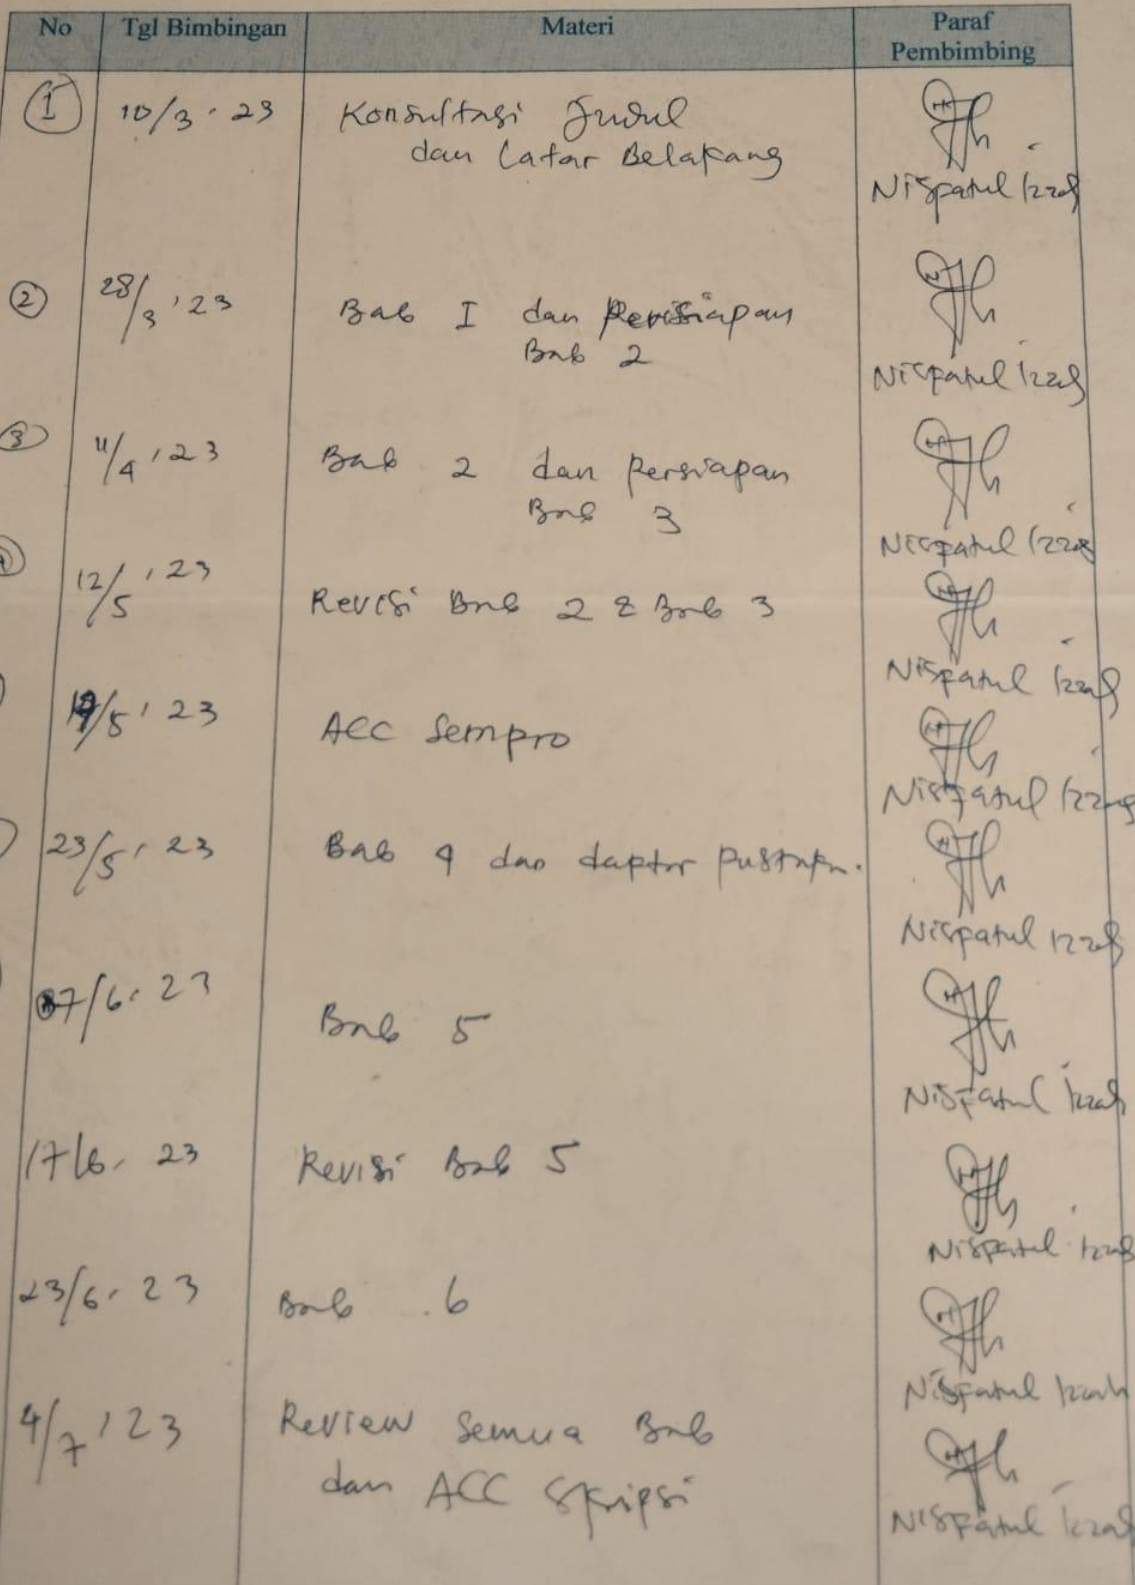 No Tgl Bimbingan Materi Paraf
Pembimbing
1 10/3 '23 Konsultasi Judul
dan Latar Belakang
Nispatul Izzah
2 28/3 '23 Bab I dan Persiapan
Bab 2
Nispatul Izzah
3 11/4 '23 Bab 2 dan Persiapan
Bab 3
Nispatul Izzah
12/5 '23 Revisi Bab 2 & Bab 3
Nispatul Izzah
19/5 '23 ACC Sempro
Nispatul Izzah
23/5 '23 Bab 4 dan daptar pustaka.
Nispatul Izzah
07/6 '23 Bab 5
Nispatul Izzah
17/6 '23 Revisi Bab 5
Nispatul Izzah
23/6 '23 Bab 6
Nispatul Izzah
4/7 '23 Review Semua Bab
dan ACC Skripsi
Nispatul Izzah